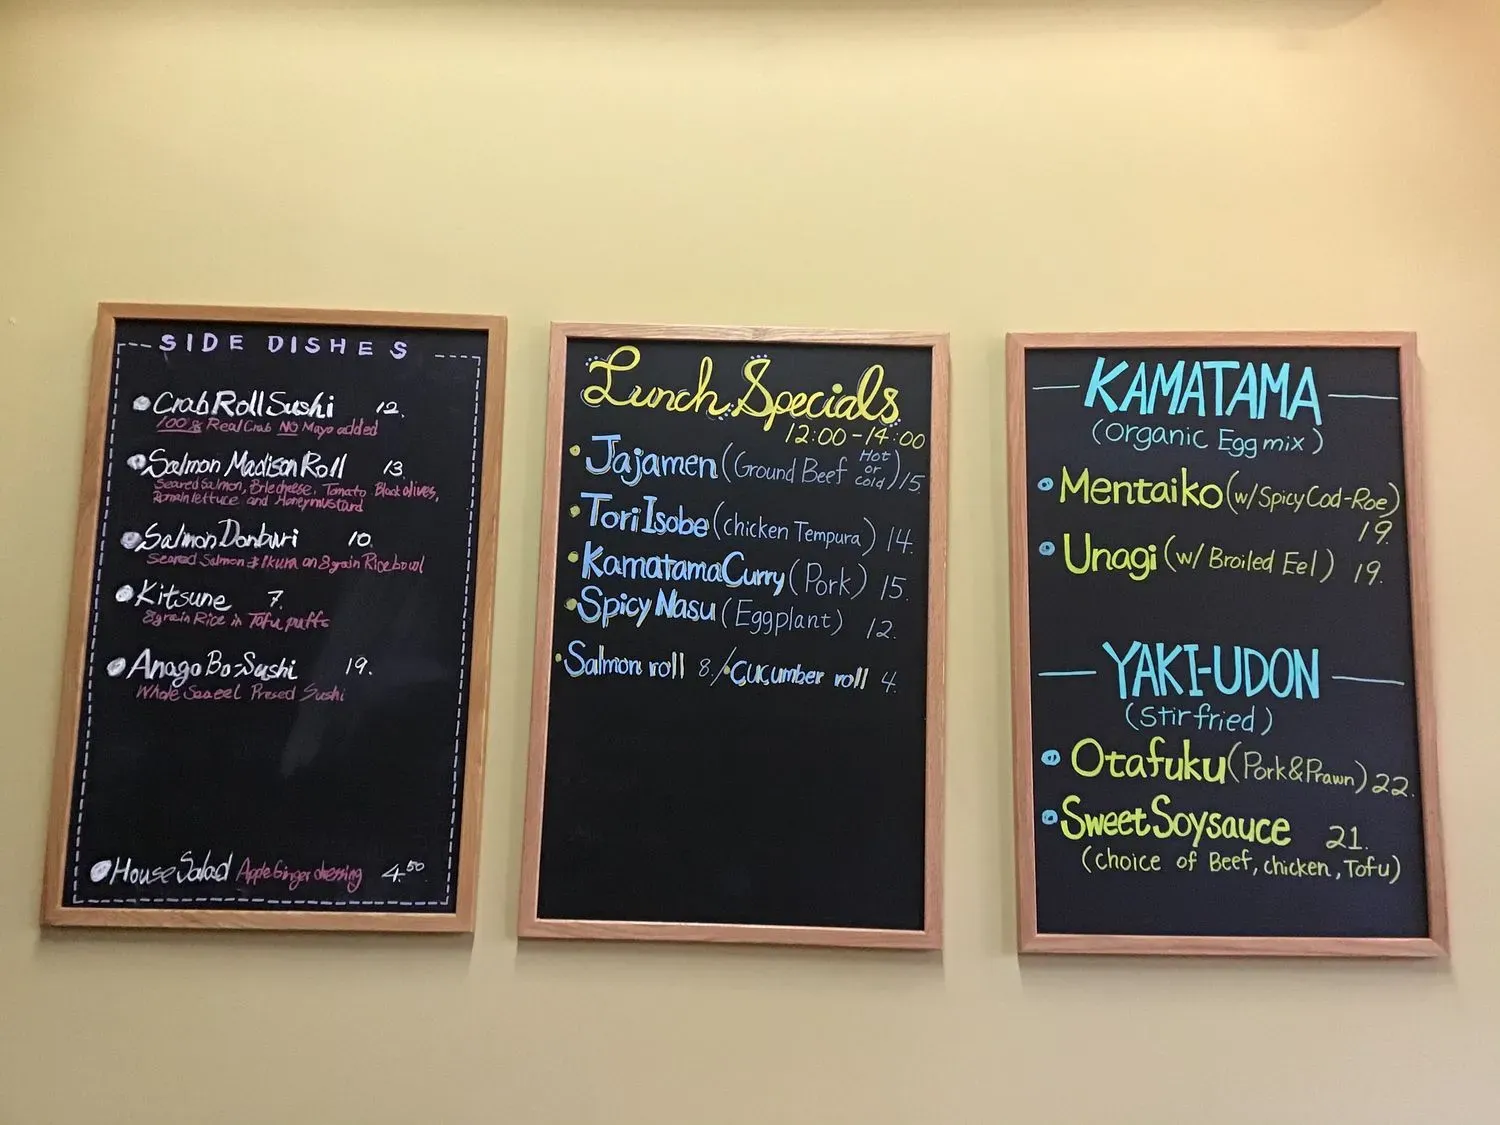 SIDE DISHES
Crab Roll Sushi 12.
100% Real Crab NO Mayo added
Salmon Madison Roll 13.
Seared Salmon, Brie cheese, Tomato, Black olives,
Romain lettuce and Honey mustard
Salmon Donburi 10.
Seared Salmon & Ikura on 8 grain Rice bowl
Kitsune 7.
8 grain Rice in Tofu puffs
Anago Bo-Sushi 19.
Whole Sea eel Presed Sushi
House Salad Apple Ginger dressing 4.50
Lunch Specials
12:00-14:00
Jajamen (Ground Beef Hot or cold) 15.
Tori Isobe (chicken Tempura) 14.
Kamatama Curry (Pork) 15.
Spicy Nasu (Eggplant) 12.
Salmon roll 8. / Cucumber roll 4.
KAMATAMA
(Organic Egg mix)
Mentaiko (w/ Spicy Cod-Roe)
19.
Unagi (w/ Broiled Eel) 19.
YAKI-UDON
(Stir fried)
Otafuku (Pork & Prawn) 22.
Sweet Soysauce 21.
(choice of Beef, chicken, Tofu)